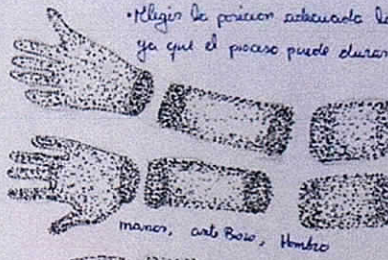 • Elegir la posicion adecuada la
ya que el proceso puede durar
manos, ante Bazo, Hombro